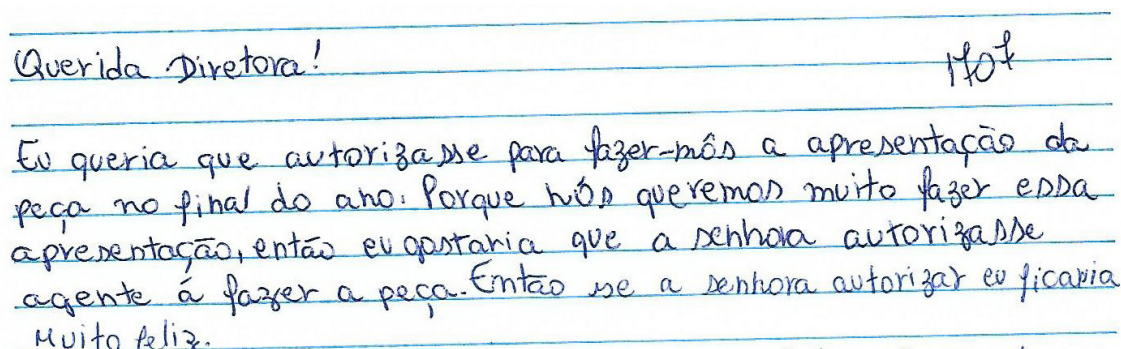 Querida Diretora!
1707
Eu queria que autorizasse para fazer-môs a apresentação da
peça no final do ano. Porque nós queremos muito fazer essa
apresentação, então eu gostaria que a senhora autorizasse
agente á fazer a peça. Então se a senhora autorizar eu ficaria
Muito feliz.